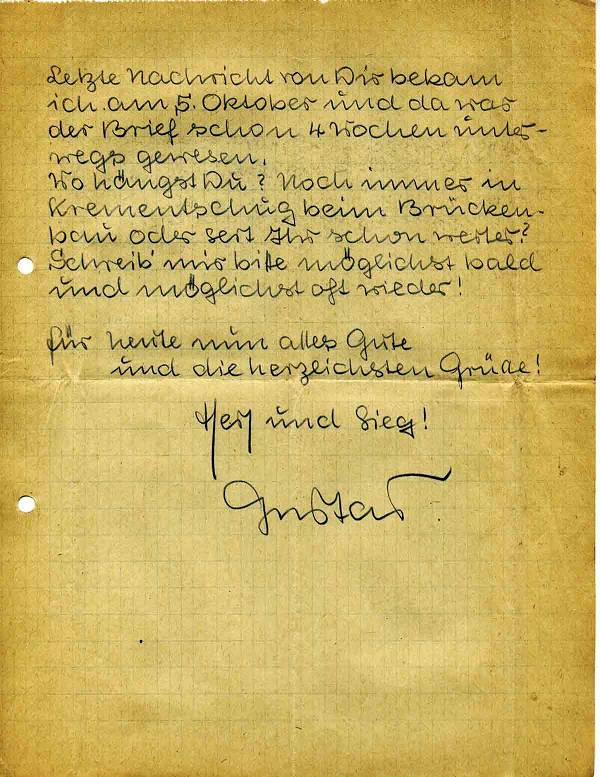 Letzte Nachricht von Dir bekam
ich am 5. Oktober und da war
der Brief schon 4 Wochen unter-
wegs gewesen.
Wo hängst Du? Noch immer in
Krementschug beim Brücken-
bau oder seit Ihr schon weiter?
Schreib' mir bitte möglichst bald
und möglichst oft wieder!
für heute nun alles Gute
und die herzlichsten Grüße!
Heil und Sieg!
Gustav